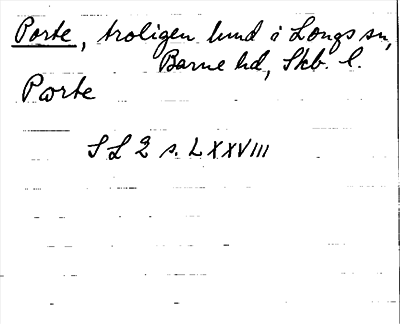 Porte, troligen lund å Longs sn,
Barne hd, Skb. l.
Porte
SL 2 s. LXXVIII